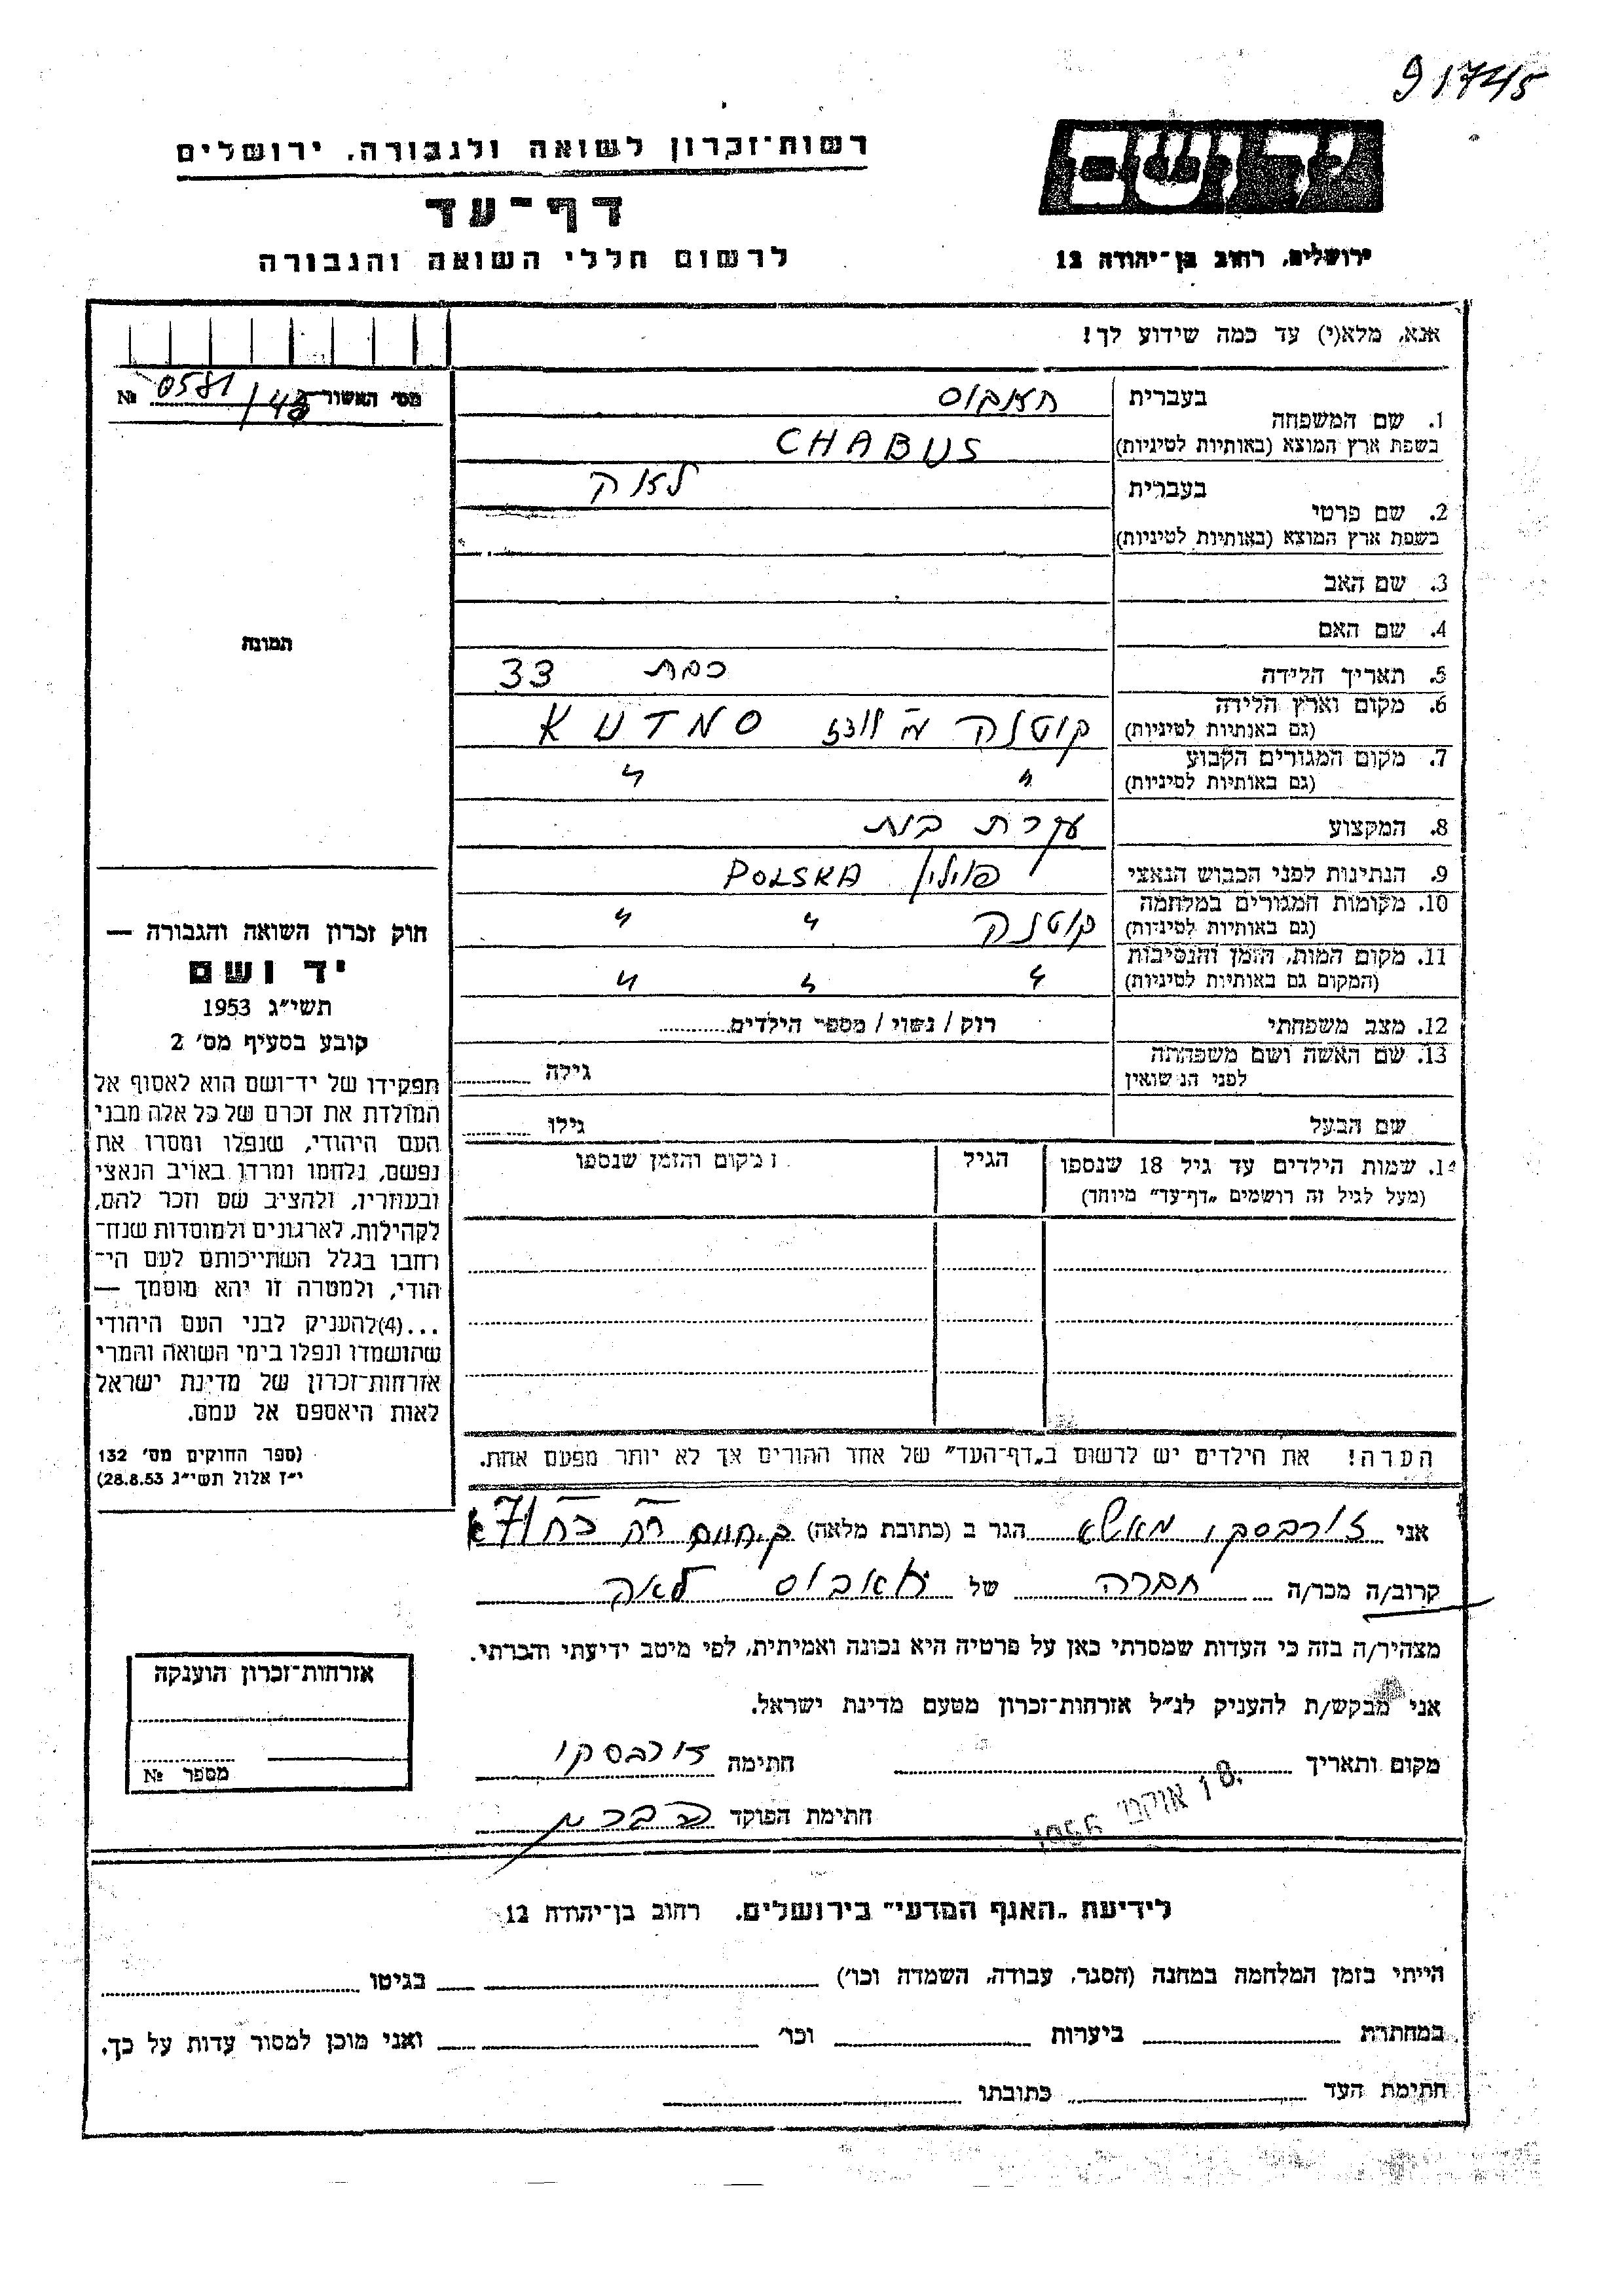 91745
ידושם
רשות־זכרון לשואה ולגבורה, ירושלים
דף־עד
לרשום חללי השואה והגבורה
ירושלים, רחוב בן־יהודה 12
אנא, מלא(י) עד כמה שידוע לך!
מס׳ האשור № 0581/43
בעברית חאבוס
1. שם המשפחה
בשפת ארץ המוצא (באותיות לטיניות) CHABUS
בעברית לאה
2. שם פרטי
בשפת ארץ המוצא (באותיות לטיניות)
3. שם האב
4. שם האם
תמונה
5. תאריך הלידה כבת 33
6. מקום וארץ הלידה קוטנה מ׳ לודז KUTNO
(גם באותיות לטיניות)
7. מקום המגורים הקבוע " "
(גם באותיות לטיניות)
8. המקצוע עקרת בית
9. הנתינות לפני הכבוש הנאצי פולין POLSKA
10. מקומות המגורים במלחמה קוטנה " "
(גם באותיות לטיניות)
11. מקום המות, הזמן והנסיבות " " "
(המקום גם באותיות לטיניות)
12. מצב משפחתי רוק / נשוי / מספר הילדים
13. שם האשה ושם משפחתה גילה
לפני הנשואין
שם הבעל גילו
14. שמות הילדים עד גיל 18 שנספו הגיל מקום והזמן שנספו
(מעל לגיל זה רושמים „דף־עד" מיוחד)
הערה! את הילדים יש לרשום ב„דף־העד" של אחד ההורים אך לא יותר מפעם אחת.
חוק זכרון השואה והגבורה —
יד ושם
תשי״ג 1953
קובע בסעיף מס׳ 2
תפקידו של יד־ושם הוא לאסוף אל
המולדת את זכרם של כל אלה מבני
העם היהודי, שנפלו ומסרו את
נפשם, נלחמו ומרדו באויב הנאצי
ובעוזריו, ולהציב שם וזכר להם,
לקהילות, לארגונים ולמוסדות שנח־
רחבו בגלל השתייכותם לעם הי־
הודי, ולמטרה זו יהא מוסמך —
...(4) להעניק לבני העם היהודי
שהושמדו ונפלו בימי השואה והמרי
אזרחות־זכרון של מדינת ישראל
לאות היאספם אל עמם.
(ספר החוקים מס׳ 132
י״ז אלול תשי״ג 28.8.53)
אני הגר ב (כתובת מלאה)
קרוב/ה מכר/ה חברה של חאבוס לאה
מצהיר/ה בזה כי העדות שמסרתי כאן על פרטיה היא נכונה ואמיתית, לפי מיטב ידיעתי והכרתי.
אני מבקש/ת להעניק לנ״ל אזרחות־זכרון מטעם מדינת ישראל.
מקום ותאריך 18 אוקט 1956 חתימה
חתימת הפוקד
אזרחות־זכרון הוענקה
מספר №
לידיעת „האגף המדעי" בירושלים, רחוב בן־יהודה 12
הייתי בזמן המלחמה במחנה (הסגר, עבודה, השמדה וכו׳) בגיטו
במחתרת ביערות וכו׳ ואני מוכן למסור עדות על כך.
חתימת העד כתובתו